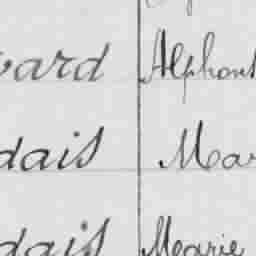 vard Alphons
dais Mar
dais Marie